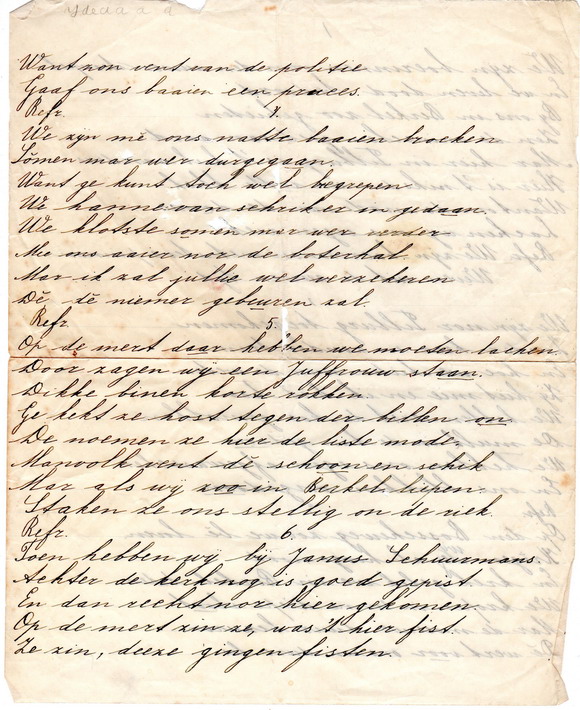 Want zon vent van de politie
Gaaf ons baaien een proces.
Refr. 4.
We zijn mè ons natte baaien broeken
Sömen mar wer durgegaan.
Want ge kunt toch wel begrepen
Wè hanne van schrik er in gedaan.
We klotste somen mar wer verder
Mie ons aaier nor de boterhal
Mar ik zal jullie wel verzekeren
Dè dè niemer gebeuren zal.
Refr. 5.
Op de mert daar hebben we moeten lachen.
Door zagen wij een Juffrouw staan.
Dikke binen korte rokken
Ge kekt ze kost tegen der billen on.
De noemen ze hier de liste mode,
Marvolk vent dè schoon en schik
Mar als wij zoo in Berkel liepen.
Staken ze ons stellig on de riek.
Refr. 6.
Toen hebben wij bij Janus Schuurmans.
Achter de kerk nog is goed gepist
En dan recht nor hier gekomen.
Op de mert zin ze, was't hier fist.
Ze zin, deeze gingen fisten.